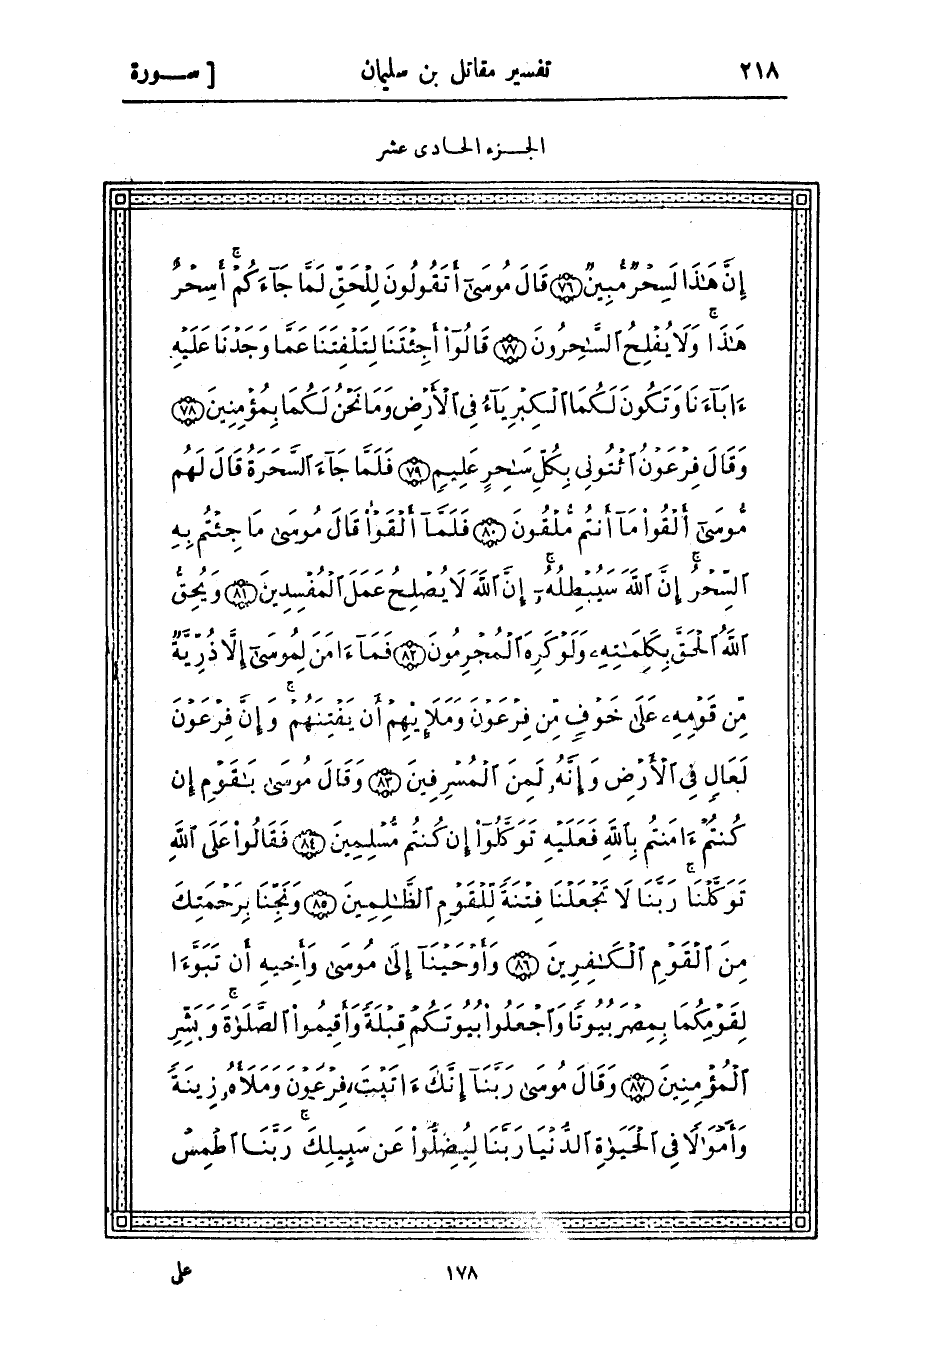 ٢١٨ تفسير مقاتل بن سليمان [ ســـورة
الجـــزء الحـادى عشر
إِنَّ هَٰذَا لَسِحْرٌ مُّبِينٌ ٧٦ قَالَ مُوسَىٰٓ أَتَقُولُونَ لِلْحَقِّ لَمَّا جَآءَكُمْ ۚ أَسِحْرٌ
هَٰذَا ۚ وَلَا يُفْلِحُ ٱلسَّٰحِرُونَ ٧٧ قَالُوٓا۟ أَجِئْتَنَا لِتَلْفِتَنَا عَمَّا وَجَدْنَا عَلَيْهِ
ءَابَآءَنَا وَتَكُونَ لَكُمَا ٱلْكِبْرِيَآءُ فِى ٱلْأَرْضِ وَمَا نَحْنُ لَكُمَا بِمُؤْمِنِينَ ٧٨
وَقَالَ فِرْعَوْنُ ٱئْتُونِى بِكُلِّ سَٰحِرٍ عَلِيمٍ ٧٩ فَلَمَّا جَآءَ ٱلسَّحَرَةُ قَالَ لَهُم
مُّوسَىٰٓ أَلْقُوا۟ مَآ أَنتُم مُّلْقُونَ ٨٠ فَلَمَّآ أَلْقَوْا۟ قَالَ مُوسَىٰ مَا جِئْتُم بِهِ
ٱلسِّحْرُ ۚ إِنَّ ٱللَّهَ سَيُبْطِلُهُۥٓ ۚ إِنَّ ٱللَّهَ لَا يُصْلِحُ عَمَلَ ٱلْمُفْسِدِينَ ٨١ وَيُحِقُّ
ٱللَّهُ ٱلْحَقَّ بِكَلِمَٰتِهِۦ وَلَوْ كَرِهَ ٱلْمُجْرِمُونَ ٨٢ فَمَآ ءَامَنَ لِمُوسَىٰٓ إِلَّا ذُرِّيَّةٌ
مِّن قَوْمِهِۦ عَلَىٰ خَوْفٍ مِّن فِرْعَوْنَ وَمَلَإِيهِمْ أَن يَفْتِنَهُمْ ۚ وَإِنَّ فِرْعَوْنَ
لَعَالٍ فِى ٱلْأَرْضِ وَإِنَّهُۥ لَمِنَ ٱلْمُسْرِفِينَ ٨٣ وَقَالَ مُوسَىٰ يَٰقَوْمِ إِن
كُنتُمْ ءَامَنتُم بِٱللَّهِ فَعَلَيْهِ تَوَكَّلُوٓا۟ إِن كُنتُم مُّسْلِمِينَ ٨٤ فَقَالُوا۟ عَلَى ٱللَّهِ
تَوَكَّلْنَا ۚ رَبَّنَا لَا تَجْعَلْنَا فِتْنَةً لِّلْقَوْمِ ٱلظَّٰلِمِينَ ٨٥ وَنَجِّنَا بِرَحْمَتِكَ
مِنَ ٱلْقَوْمِ ٱلْكَٰفِرِينَ ٨٦ وَأَوْحَيْنَآ إِلَىٰ مُوسَىٰ وَأَخِيهِ أَن تَبَوَّءَا
لِقَوْمِكُمَا بِمِصْرَ بُيُوتًا وَٱجْعَلُوا۟ بُيُوتَكُمْ قِبْلَةً وَأَقِيمُوا۟ ٱلصَّلَوٰةَ ۚ وَبَشِّرِ
ٱلْمُؤْمِنِينَ ٨٧ وَقَالَ مُوسَىٰ رَبَّنَآ إِنَّكَ ءَاتَيْتَ فِرْعَوْنَ وَمَلَأَهُۥ زِينَةً
وَأَمْوَٰلًا فِى ٱلْحَيَوٰةِ ٱلدُّنْيَا رَبَّنَا لِيُضِلُّوا۟ عَن سَبِيلِكَ ۚ رَبَّنَا ٱطْمِسْ
١٧٨ على